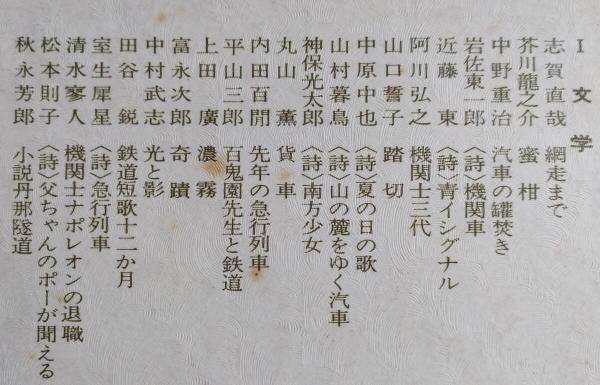 I 文学
志賀直哉 網走まで
芥川龍之介 蜜柑
中野重治 汽車の罐焚き
岩佐東一郎 〈詩〉機関車
近藤東 〈詩〉青イシグナル
阿川弘之 機関士三代
山口誓子 踏切
中原中也 〈詩〉夏の日の歌
山村暮鳥 〈詩〉山の麓をゆく汽車
神保光太郎 〈詩〉南方少女
丸山薫 貨車
内田百閒 先年の急行列車
平山三郎 百鬼園先生と鉄道
上田廣 濃霧
富永次郎 奇蹟
中村武志 光と影
田谷鋭 鉄道短歌十二か月
室生犀星 〈詩〉急行列車
清水寥人 機関士ナポレオンの退職
松本則子 〈詩〉父ちゃんのポーが聞える
秋永芳郎 小説丹那隧道